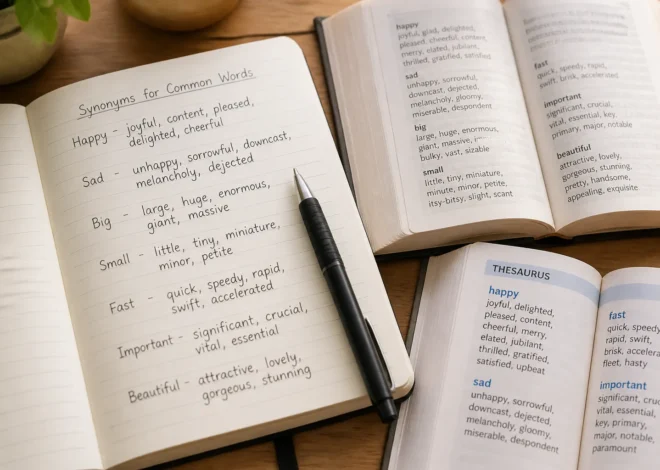 Synonyms for Common Words
Happy – joyful, content, pleased,
delighted, cheerful
Sad – unhappy, sorrowful, downcast,
melancholy, dejected
Big – large, huge, enormous,
giant, massive
Small – little, tiny, miniature,
minor, petite
Fast – quick, speedy, rapid,
swift, accelerated
Important – significant, crucial,
vital, essential
Beautiful – attractive, lovely,
gorgeous, stunning
happy
joyful, glad, delighted,
pleased, cheerful, content,
merry, elated, jubilant,
thrilled, gratified, satisfied
sad
unhappy, sorrowful,
downcast, dejected,
melancholy, gloomy,
miserable, despondent
big
large, huge, enormous,
giant, massive,
bulky, vast, sizable
small
little, tiny, miniature,
minute, minor, petite,
itsy-bitsy, slight, scant
fast
quick, speedy, rapid,
swift, brisk, accelerated
important
significant, crucial,
vital, essential, key,
primary, major, notable
beautiful
attractive, lovely,
gorgeous, stunning,
pretty, handsome,
appealing, exquisite
THESAURUS
happy
joyful, delighted,
pleased, content,
cheerful, merry,
elated, jubilant,
thrilled, gratified,
satisfied, upbeat
sad
unhappy, sorrowful,
downcast, dejected,
melancholy, gloomy,
miserable, despondent
fast
quick, speedy
rapid, swift,
brisk, accelera
fleet, hasty
important
significant, cruc
vital, essential,
key, primary,
major, notable,
paramount